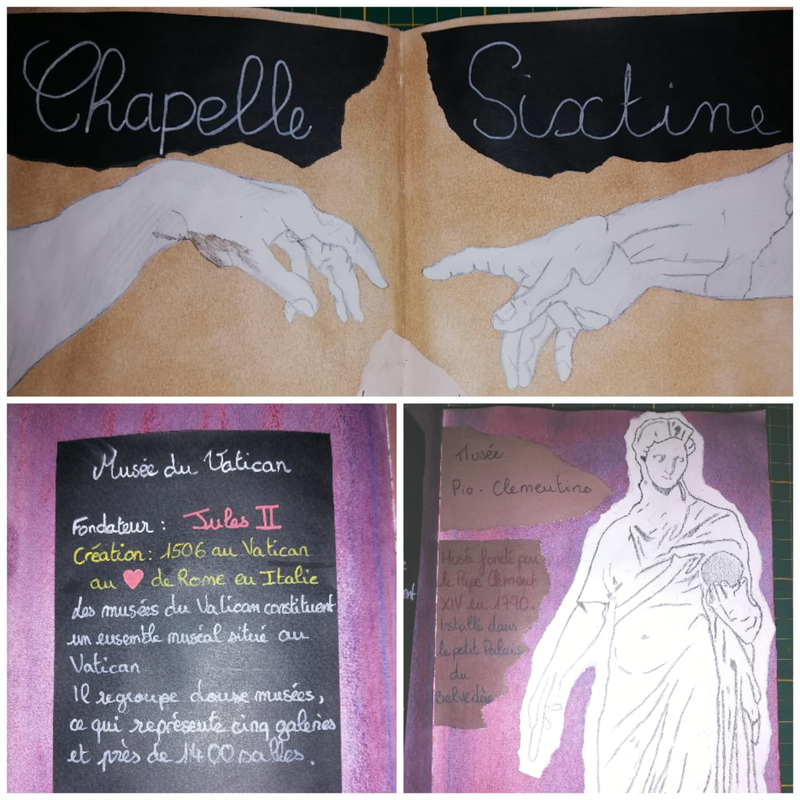 Chapelle Sixtine
Musée du Vatican
Fondateur : Jules II
Création : 1506 au Vatican
au ❤ de Rome en Italie
Les musées du Vatican constituent
un ensemble muséal situé au
Vatican
Il regroupe douse musées,
ce qui représente cinq galeries
et près de 1400 salles.
Musée
Pio-Clementino
Musée fondé par
le Pape Clément
XIV en 1770.
Installé dans
le petit Palais
du
Belvédère